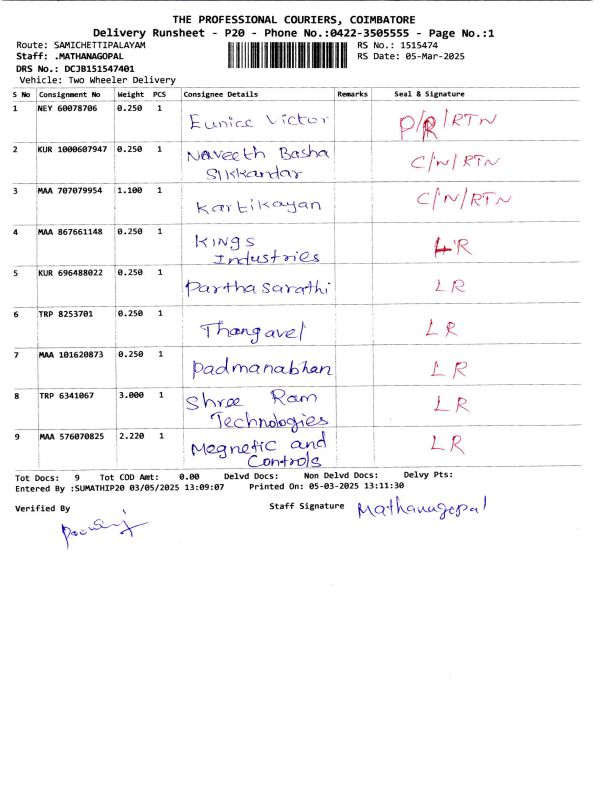 THE PROFESSIONAL COURIERS, COIMBATORE
Delivery Runsheet - P20 - Phone No.:0422-3505555 - Page No.:1
Route: SAMICHETTIPALAYAM RS No.: 1515474
Staff: .MATHANAGOPAL RS Date: 05-Mar-2025
DRS No.: DCJB151547401
Vehicle: Two Wheeler Delivery
S No Consignment No Weight PCS Consignee Details Remarks Seal & Signature
1 NEY 60078706 0.250 1 Eunice Victor P/R/RTN
2 KUR 1000607947 0.250 1 Naveeth Basha C/N/RTN
Sikkandar
3 MAA 707079954 1.100 1 Kartikayan C/N/RTN
4 MAA 867661148 0.250 1 Kings LR
Industries
5 KUR 696488022 0.250 1 Parthasarathi LR
6 TRP 8253701 0.250 1 Thangavel LR
7 MAA 101620873 0.250 1 Padmanabhan LR
8 TRP 6341067 3.000 1 Shree Ram LR
Technologies
9 MAA 576070825 2.220 1 Megnetic and LR
Controls
Tot Docs: 9 Tot COD Amt: 0.00 Delvd Docs: Non Delvd Docs: Delvy Pts:
Entered By :SUMATHIP20 03/05/2025 13:09:07 Printed On: 05-03-2025 13:11:30
Verified By Staff Signature Mathanagopal